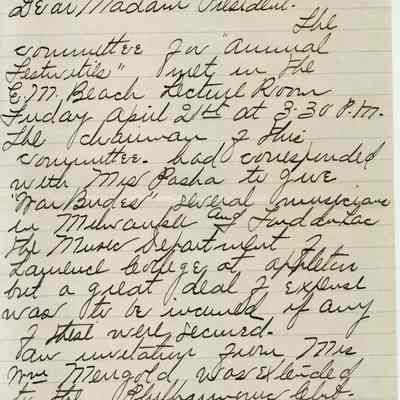 Dear Madam President.
The
committee for "Annual
Festivities" met in the
E.M. Beach Lecture Room
Friday April 21st at 3:30 P.M.
The chairman of this
committee. had corresponded
with Mrs Pasha to give
"War Brides" several musicians
in Milwaukee and Fond du Lac
the Music Department of
Lawrence College at Appleton
but a great deal of expense
was to be incurred if any
of these were secured.
an invitation from Mrs
Wm Mengold was extended
to the Philharmonic Club.